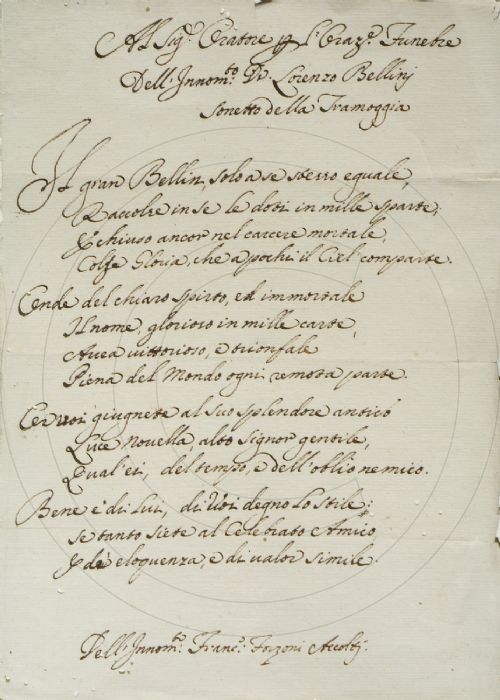 Al Sig.r Oratore p L'Oraz.e Funebre
Dell'Innom.to D.r Lorenzo Bellinj
Sonetto della Tramoggia
Il gran Bellin, solo a se stesso eguale,
Raccolse in se le doti in mille sparte,
E chiuso ancor nel carcere mortale,
Colse Gloria, che a pochi il Ciel comparte.
Onde del chiaro spirto, ed immortale
Il nome, glorioso in mille carte,
Avea vittorioso, e trionfale
Piena del Mondo ogni remota parte.
Or voi giugnete al suo splendore antico
Luce novella, alto Signor gentile,
Qual'ei, del tempo, e dell'oblio nemico.
Bene è di Lui, di Voi degno Lo Stile;
Se tanto siete al Celebrato e Amico,
E di eloquenza, e di valor simile.
Dell'Innom.to Franc.o Forzoni Accoltj.